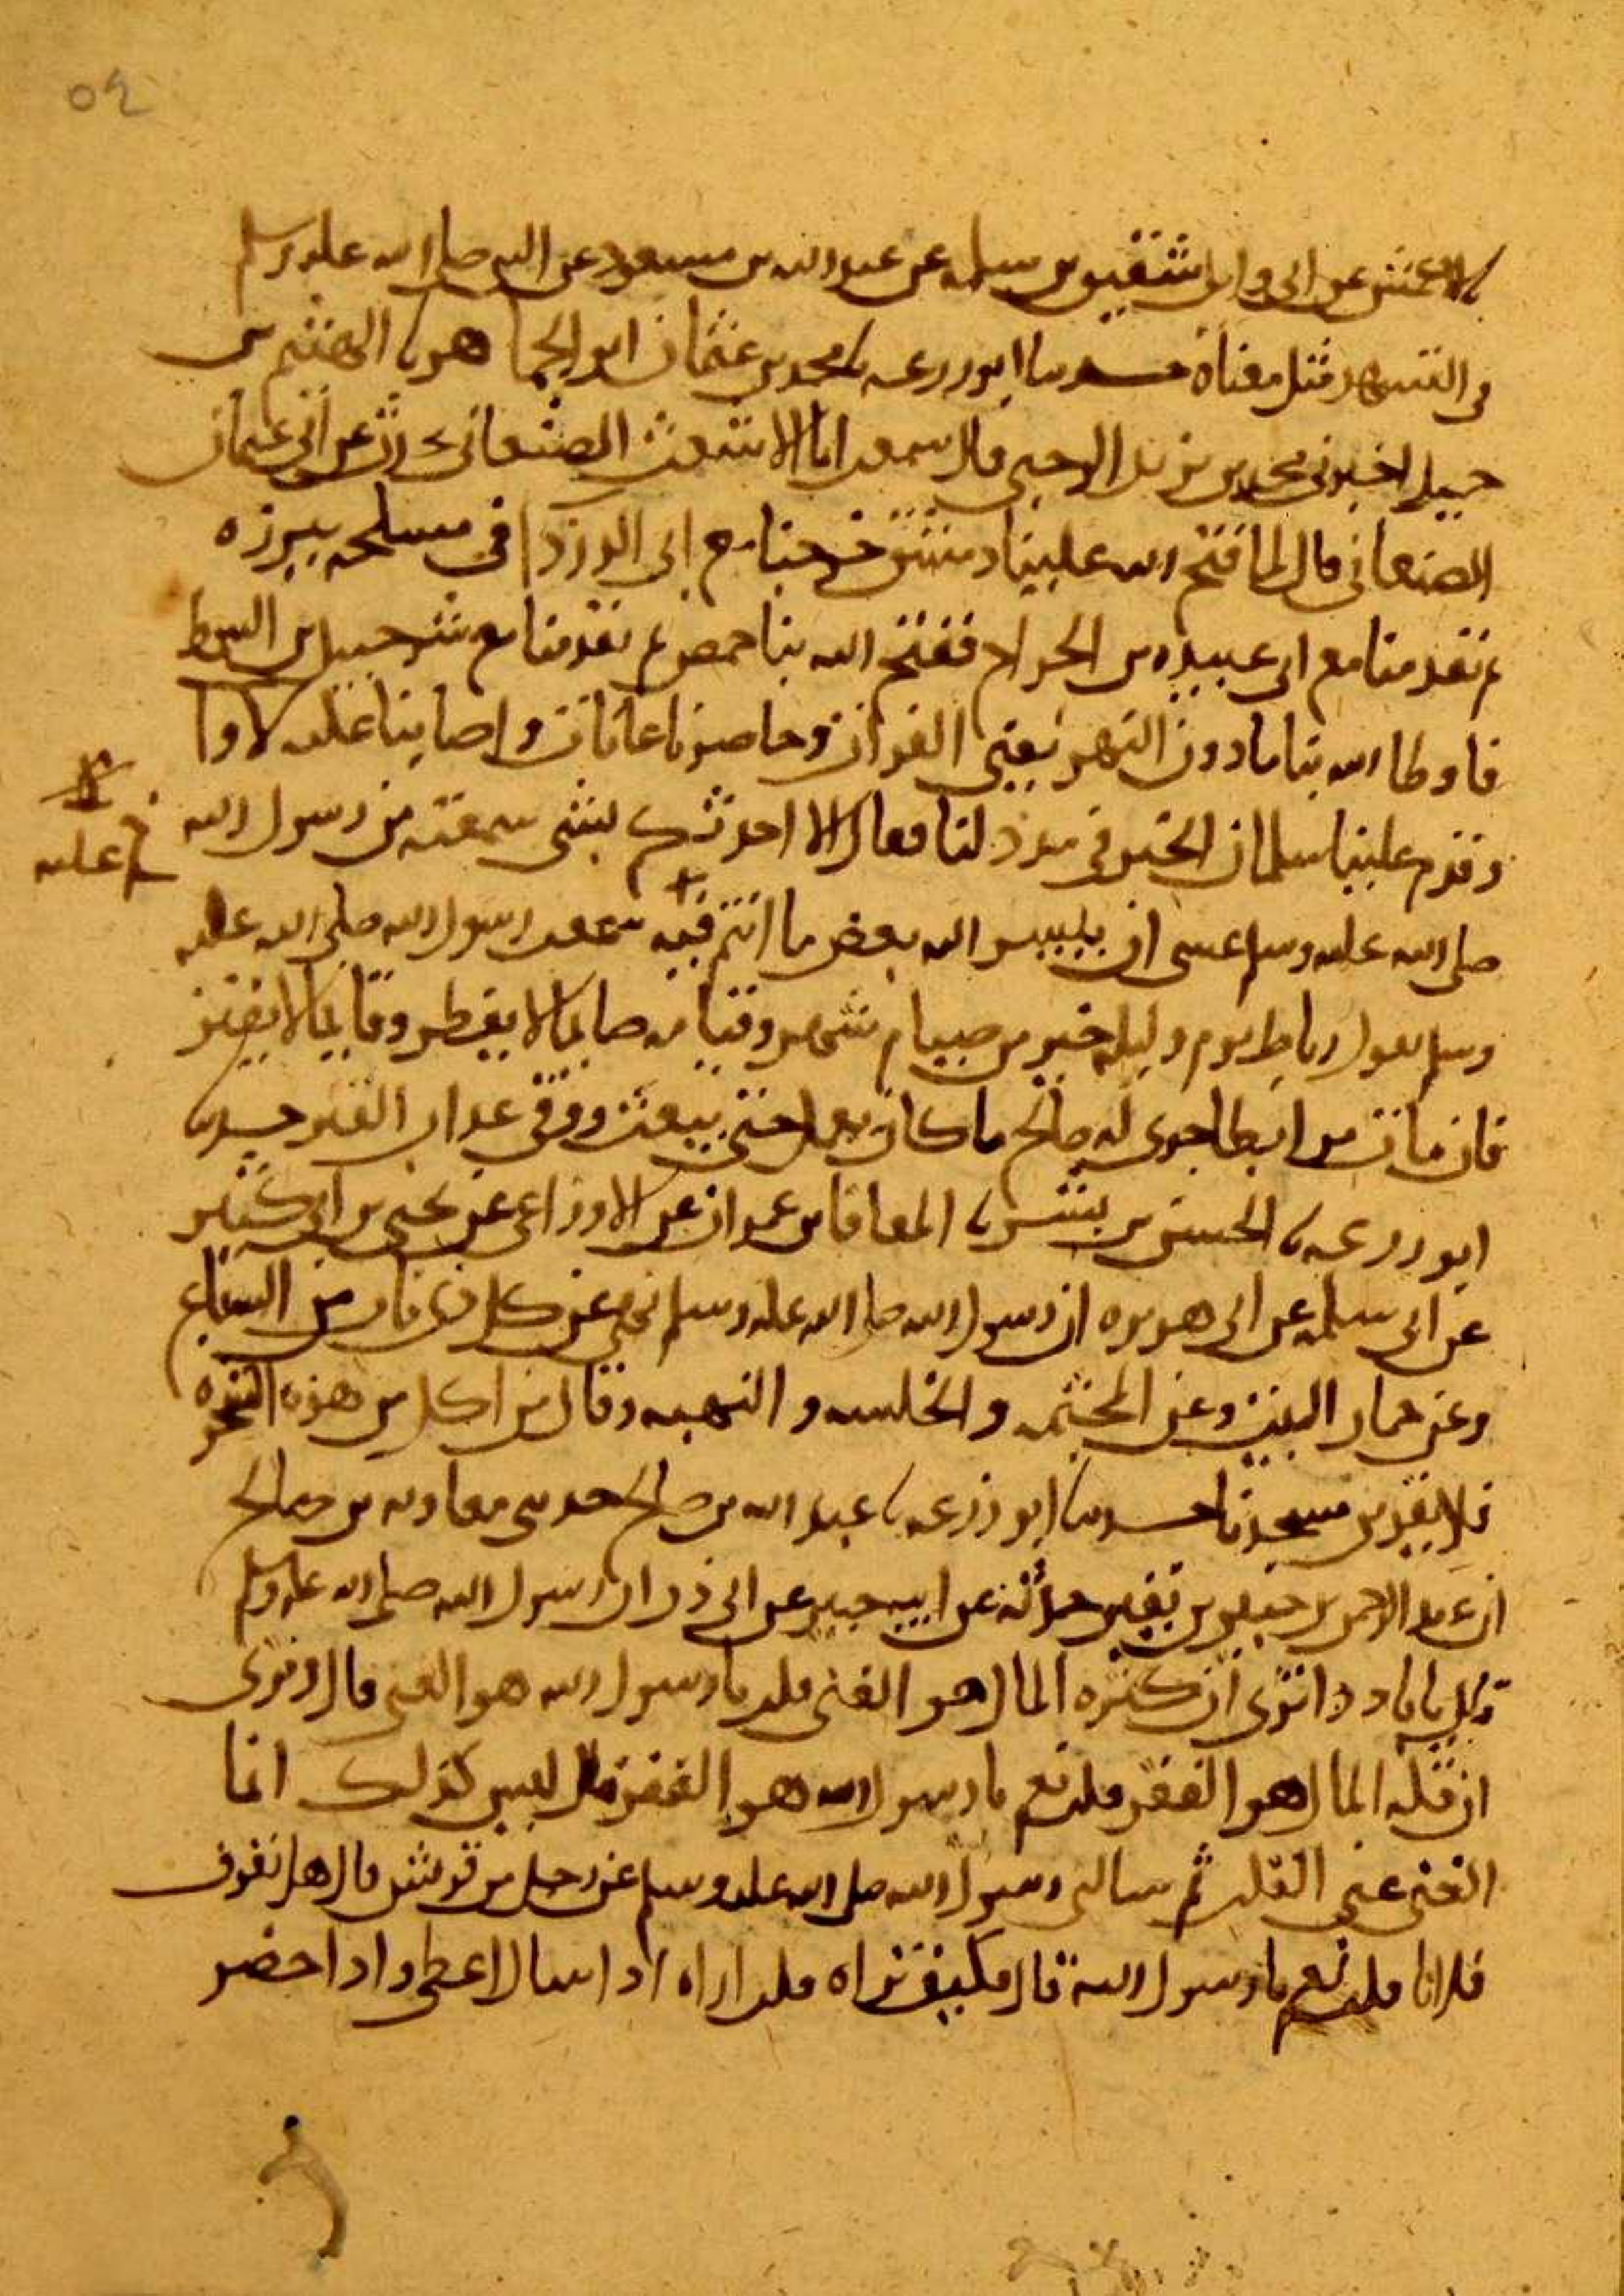 ٥٩
الاعمش عن ابي وايل شقيق بن سلمه عن عبد الله بن مسعود عن النبي صلى الله عليه وسلم
في التشهد مثل معناه حدثنا ابو زرعه نا محمد بن عثمان ابو الجماهر نا الهيثم بن
حميد اخبرني محمد بن يزيد الرحبي قال سمعت ابا الاشعث الصنعاني عن ابي عثمان
الصنعاني قال لما فتح الله علينا دمشق خرجنا مع ابي الدرداء في مسلحه ببرزه
ثم تقدمنا مع ابي عبيده بن الجراح ففتح الله بنا حمص ثم تقدمنا مع شرحبيل بن السمط
فاوطا الله بنا ما دون النهر يعني الفرات وحاصرنا عانات واصابنا عليه لاوا
وقدم علينا سلمان الخير في مدد لنا فقال الا احدثكم بشي سمعته من رسول الله
صلى الله عليه وسلم عسى ان الله بعض ما انتم فيه سمعت رسول الله صلى الله عليه
وسلم يقول رباط يوم وليله خير من صيام شهر وقيامه صايما لا يفطر وقايما لا يفتر
فان مات مرابطا جرى له صالح ما كان يعمل حتى يبعث ووقي عذاب القبر حدثنا
ابو زرعه نا الحسن بن بشر نا المعافا بن عمران عن الاوزاعي عن يحيى بن ابي كثير
عن ابي سلمه عن ابي هريره ان رسول الله صلى الله عليه وسلم نهى عن كل ذي ناب من السباع
وعن حمار البيت وعن المجثمه والخلسه والنهبه وقال من اكل من هذه الشجره
فلا يقربن مسجدنا حدثنا ابو زرعه نا عبد الله بن صالح حدثني معاويه بن صالح
ان عبد الرحمن بن جبير بن نفير حدثه عن ابيه جبير عن ابي ذر ان رسول الله صلى الله عليه وسلم
قال يابا ذر اترى ان كثره المال هو الغنى قلت يا رسول الله هو الغنى قال وترى
ان قله المال هو الفقر قلت نعم يا رسول الله هو الفقر قال ليس كذلك انما
الغنى غنى القلب ثم سالني رسول الله صلى الله عليه وسلم عن رجل من قريش قال هل تعرف
فلانا قلت نعم يا رسول الله قال فكيف تراه قلت اراه اذا سال اعطي واذا حضر